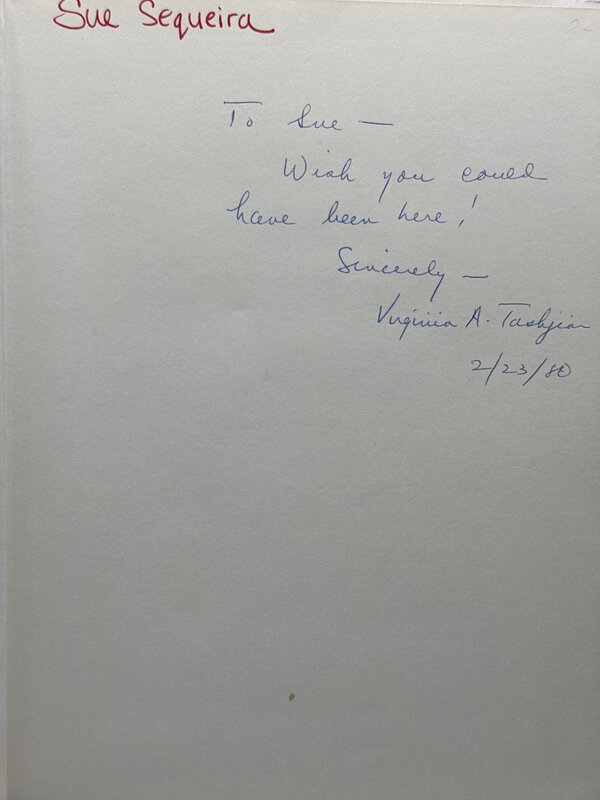 Sue Sequeira
To Sue —
Wish you could
have been here!
Sincerely —
Virginia A. Tashjian
2/23/80